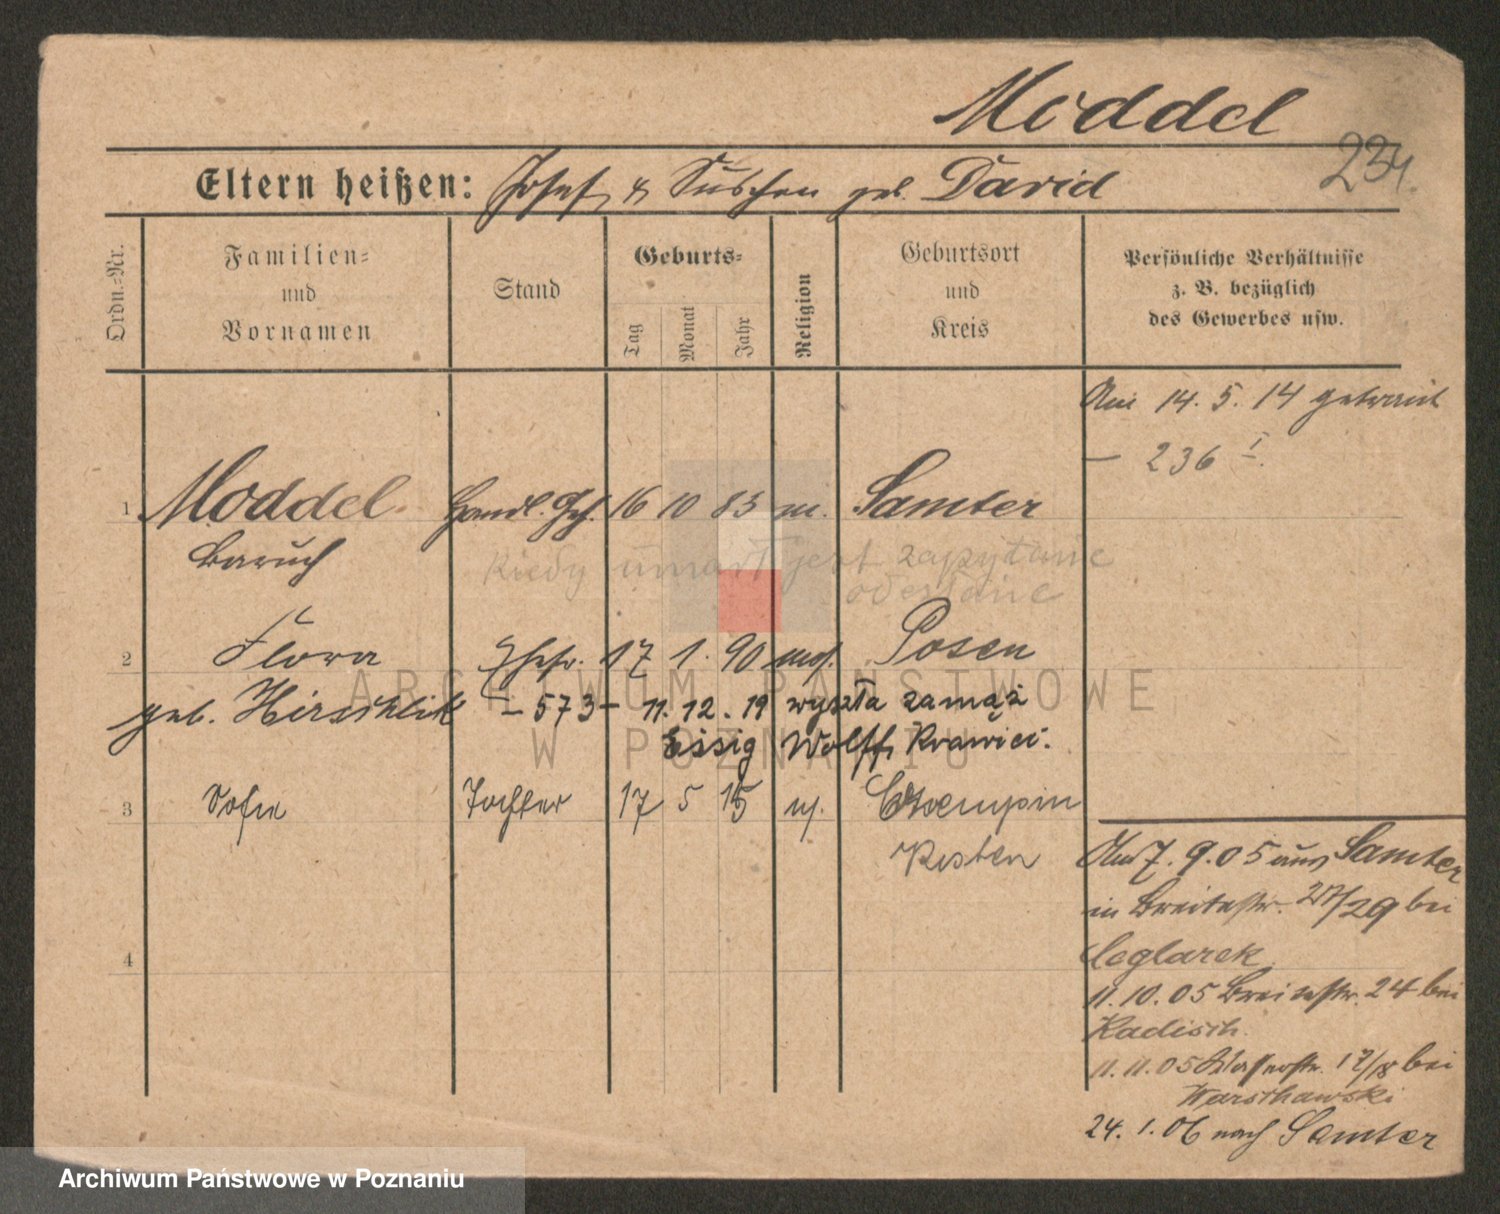 Moddel
234.
Eltern heißen: Josef & Süschen geb. David
Ordn.=Nr.
Familien=
und
Vornamen
Stand
Geburts=
Tag
Monat
Jahr
Religion
Geburtsort
und
Kreis
Persönliche Verhältnisse
z. B. bezüglich
des Gewerbes usw.
Am 14. 5. 14 getraut
— 236 I.
1 Moddel Handl. Geh. 16 10 83 m. Samter
Baruch
kiedy umarł jest zapytanie
odesłane
2 Flora Ehefr. 17 1. 90 mos. Posen
geb. Hirschlik – 573 – 11. 12. 19 wyszła zamąż
Essig Wolff, Krawiec.
3 Sofie Tochter 17 5 15 m. Czempin
Kosten
4
Am 7. 9. 05 aus Samter
in Breitestr. 27/29 bei
Ceglarek
11. 10. 05 Breitestr. 24 bei
Radisch.
11. 11. 05 Wasserstr. 17/18 bei
Warschawski
24. 1. 06 nach Samter
ARCHIWUM PAŃSTWOWE
W POZNANIU
Archiwum Państwowe w Poznaniu